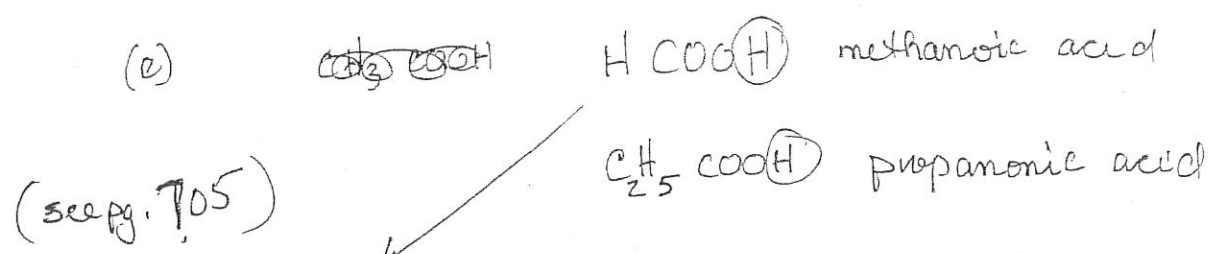 (e) CH3 COOH HCOOH methanoic acid
C2H5 COOH propanonic acid
(see pg. 705)